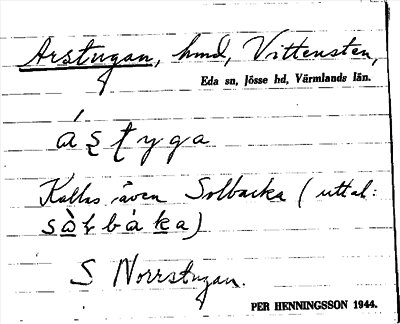 Arstugan, hmd, Vittensten,
Eda sn, Jösse hd, Värmlands län.
á ʂ ʈ y g a
Kallas även Solbacka (uttal:
sòɫbàka)
S Norrstugan.
PER HENNINGSSON 1944.